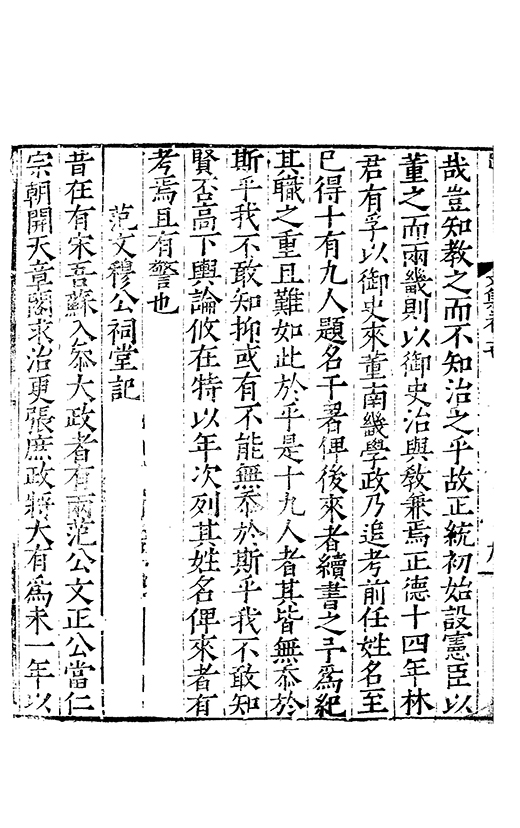 哉豈知教之而不知治之乎故正統初始設憲臣以
董之而兩畿則以御史治與教兼焉正德十四年林
君有孚以御史來董南畿學政乃追考前任姓名至
已得十有九人題名于署俾後來者續書之予爲紀
其職之重且難如此於乎是十九人者其皆無忝於
斯乎我不敢知抑或有不能無忝於斯乎我不敢知
賢否高下輿論攸在特以年次列其姓名俾來者有
考焉且有警也
范文穆公祠堂記
昔在有宋吾蘇入叅大政者有兩范公文正公當仁
宗朝開天章閣求治更張庶政將大有爲未一年以